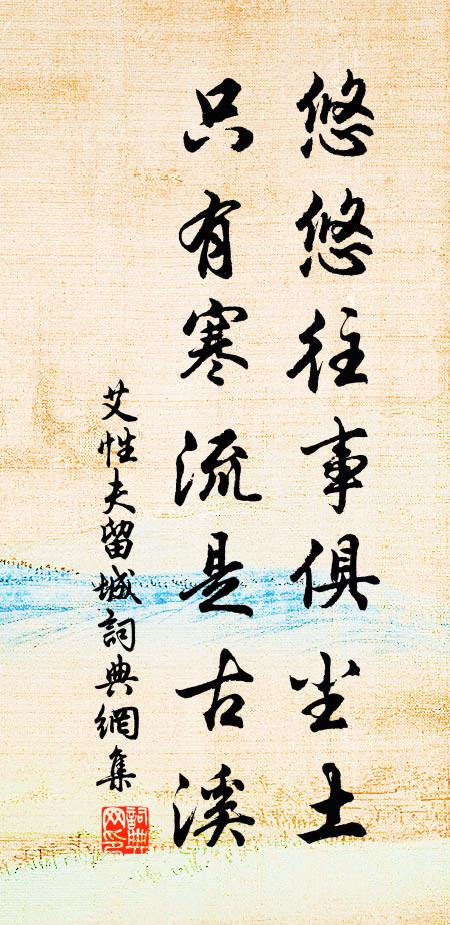 悠悠往事俱尘土
只有寒流是古溪
艾性夫留城詞典網集
詞典网印